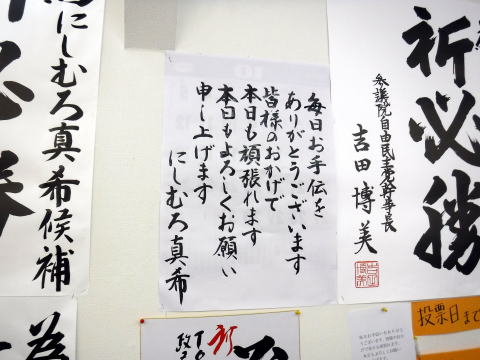 祈必勝
参議院自由民主党幹事長
吉田博美
毎日お手伝を
ありがとうございます
皆様のおかげで
本日も頑張れます
本日もよろしくお願い
申し上げます
にしむろ真希
にしむろ真希候補
必勝
投票日まで
祈
TO
政
為